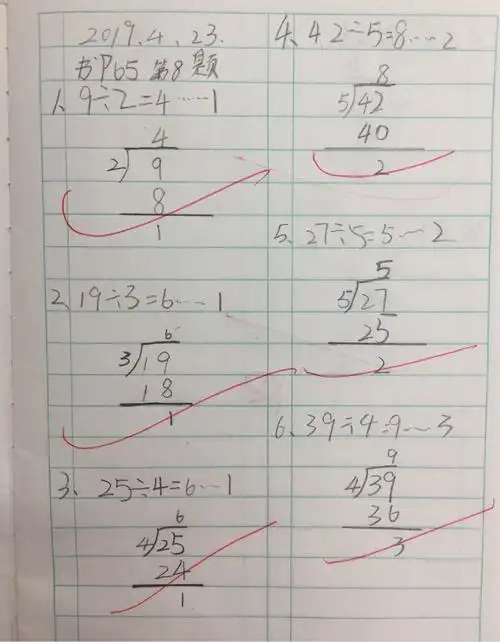 2019.4.23.
书P65 第8题
1、9÷2=4……1
4
2)9
8
1
2、19÷3=6……1
6
3)19
18
1
3、25÷4=6…1
6
4)25
24
1
4、42÷5=8……2
8
5)42
40
2
5、27÷5=5…2
5
5)27
25
2
6、39÷4=9…3
9
4)39
36
3